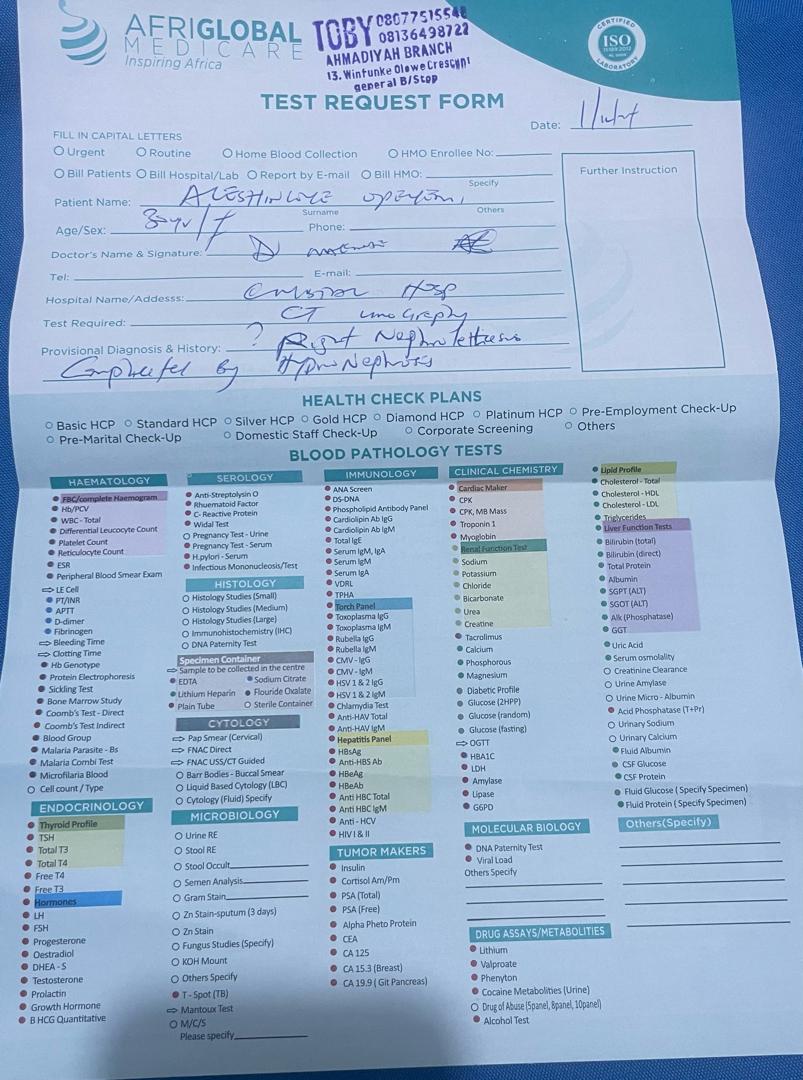 AFRIGLOBAL
MEDICARE
Inspiring Africa
TOBY 08077515548
08136498722
AHMADIYAH BRANCH
13. Winfunke Olowe Crescent
general B/Stop
CERTIFIED
ISO
LABORATORY
TEST REQUEST FORM
Date:
FILL IN CAPITAL LETTERS
Urgent Routine Home Blood Collection HMO Enrollee No:
Bill Patients Bill Hospital/Lab Report by E-mail Bill HMO:
Specify
Further Instruction
Patient Name:
Surname Others
Age/Sex: 30yr/F Phone:
Doctor's Name & Signature: D
Tel: E-mail:
Hospital Name/Addesss: Hosp
Test Required: CT Urography
Provisional Diagnosis & History: ? Right Nephrolithiasis
Complicated By Hydronephrosis
HEALTH CHECK PLANS
Basic HCP Standard HCP Silver HCP Gold HCP Diamond HCP Platinum HCP Pre-Employment Check-Up
Pre-Marital Check-Up Domestic Staff Check-Up Corporate Screening Others
BLOOD PATHOLOGY TESTS
HAEMATOLOGY
FBC/complete Haemogram
Hb/PCV
WBC - Total
Differential Leucocyte Count
Platelet Count
Reticulocyte Count
ESR
Peripheral Blood Smear Exam
LE Cell
PT/INR
APTT
D-dimer
Fibrinogen
Bleeding Time
Clotting Time
Hb Genotype
Protein Electrophoresis
Sickling Test
Bone Marrow Study
Coomb's Test - Direct
Coomb's Test Indirect
Blood Group
Malaria Parasite - Bs
Malaria Combi Test
Microfilaria Blood
Cell count / Type
ENDOCRINOLOGY
Thyroid Profile
TSH
Total T3
Total T4
Free T4
Free T3
Hormones
LH
FSH
Progesterone
Oestradiol
DHEA - S
Testosterone
Prolactin
Growth Hormone
B HCG Quantitative
SEROLOGY
Anti-Streptolysin O
Rhuematoid Factor
C- Reactive Protein
Widal Test
Pregnancy Test - Urine
Pregnancy Test - Serum
H.pylori - Serum
Infectious Mononucleosis/Test
HISTOLOGY
Histology Studies (Small)
Histology Studies (Medium)
Histology Studies (Large)
Immunohistochemistry (IHC)
DNA Paternity Test
Specimen Container
Sample to be collected in the centre
EDTA Sodium Citrate
Lithium Heparin Flouride Oxalate
Plain Tube Sterile Container
CYTOLOGY
Pap Smear (Cervical)
FNAC Direct
FNAC USS/CT Guided
Barr Bodies - Buccal Smear
Liquid Based Cytology (LBC)
Cytology (Fluid) Specify
MICROBIOLOGY
Urine RE
Stool RE
Stool Occult
Semen Analysis
Gram Stain
Zn Stain-sputum (3 days)
Zn Stain
Fungus Studies (Specify)
KOH Mount
Others Specify
T - Spot (TB)
Mantoux Test
M/C/S
Please specify
IMMUNOLOGY
ANA Screen
DS-DNA
Phospholipid Antibody Panel
Cardiolipin Ab IgG
Cardiolipin Ab IgM
Total IgE
Serum IgM, IgA
Serum IgM
Serum IgA
VDRL
TPHA
Torch Panel
Toxoplasma IgG
Toxoplasma IgM
Rubella IgG
Rubella IgM
CMV - IgG
CMV - IgM
HSV 1 & 2 IgM
HSV 1 & 2 IgM
Chlamydia Test
Anti-HAV Total
Anti-HAV IgM
Hepatitis Panel
HBsAg
Anti-HBS Ab
HBeAg
HBeAb
Anti HBC Total
Anti HBC IgM
Anti - HCV
HIV I & II
TUMOR MAKERS
Insulin
Cortisol Am/Pm
PSA (Total)
PSA (Free)
Alpha Pheto Protein
CEA
CA 125
CA 15.3 (Breast)
CA 19.9 ( Git Pancreas)
CLINICAL CHEMISTRY
Cardiac Maker
CPK
CPK, MB Mass
Troponin 1
Myoglobin
Renal Function Test
Sodium
Potassium
Chloride
Bicarbonate
Urea
Creatine
Tacrolimus
Calcium
Phosphorous
Magnesium
Diabetic Profile
Glucose (2HPP)
Glucose (random)
Glucose (fasting)
OGTT
HBA1C
LDH
Amylase
Lipase
G6PD
MOLECULAR BIOLOGY
DNA Paternity Test
Viral Load
Others Specify
DRUG ASSAYS/METABOLITIES
Lithium
Valproate
Phenyton
Cocaine Metabolities (Urine)
Drug of Abuse (5panel, 8panel, 10panel)
Alcohol Test
Lipid Profile
Cholesterol - Total
Cholesterol - HDL
Cholesterol - LDL
Triglycerides
Liver Function Tests
Bilirubin (total)
Bilirubin (direct)
Total Protein
Albumin
SGPT (ALT)
SGOT (ALT)
Alk (Phosphatase)
GGT
Uric Acid
Serum osmolality
Creatinine Clearance
Urine Amylase
Urine Micro - Albumin
Acid Phosphatase (T+Pr)
Urinary Sodium
Urinary Calcium
Fluid Albumin
CSF Glucose
CSF Protein
Fluid Glucose ( Specify Specimen)
Fluid Protein ( Specify Specimen)
Others(Specify)